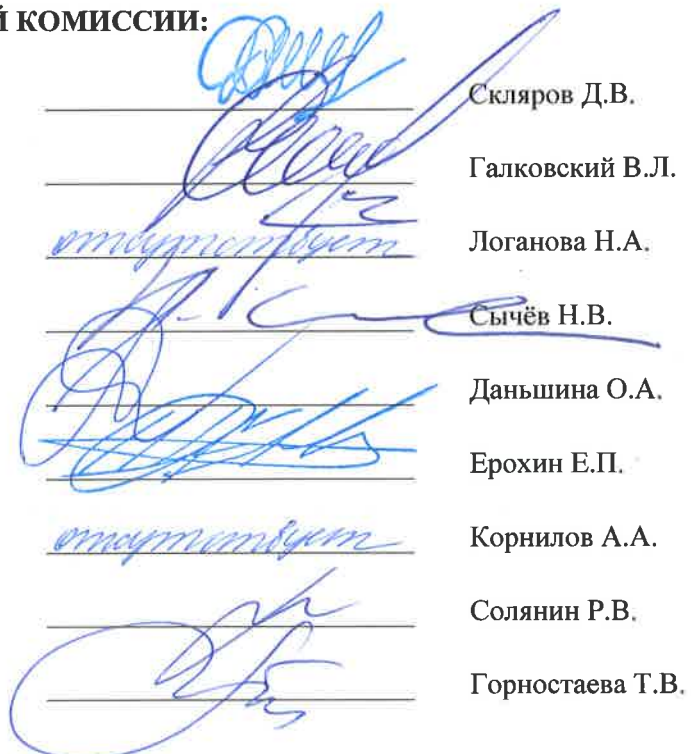 Й КОМИССИИ:
Скляров Д.В.
Галковский В.Л.
отсутствует Логанова Н.А.
Сычёв Н.В.
Даньшина О.А.
Ерохин Е.П.
отсутствует Корнилов А.А.
Солянин Р.В.
Горностаева Т.В.